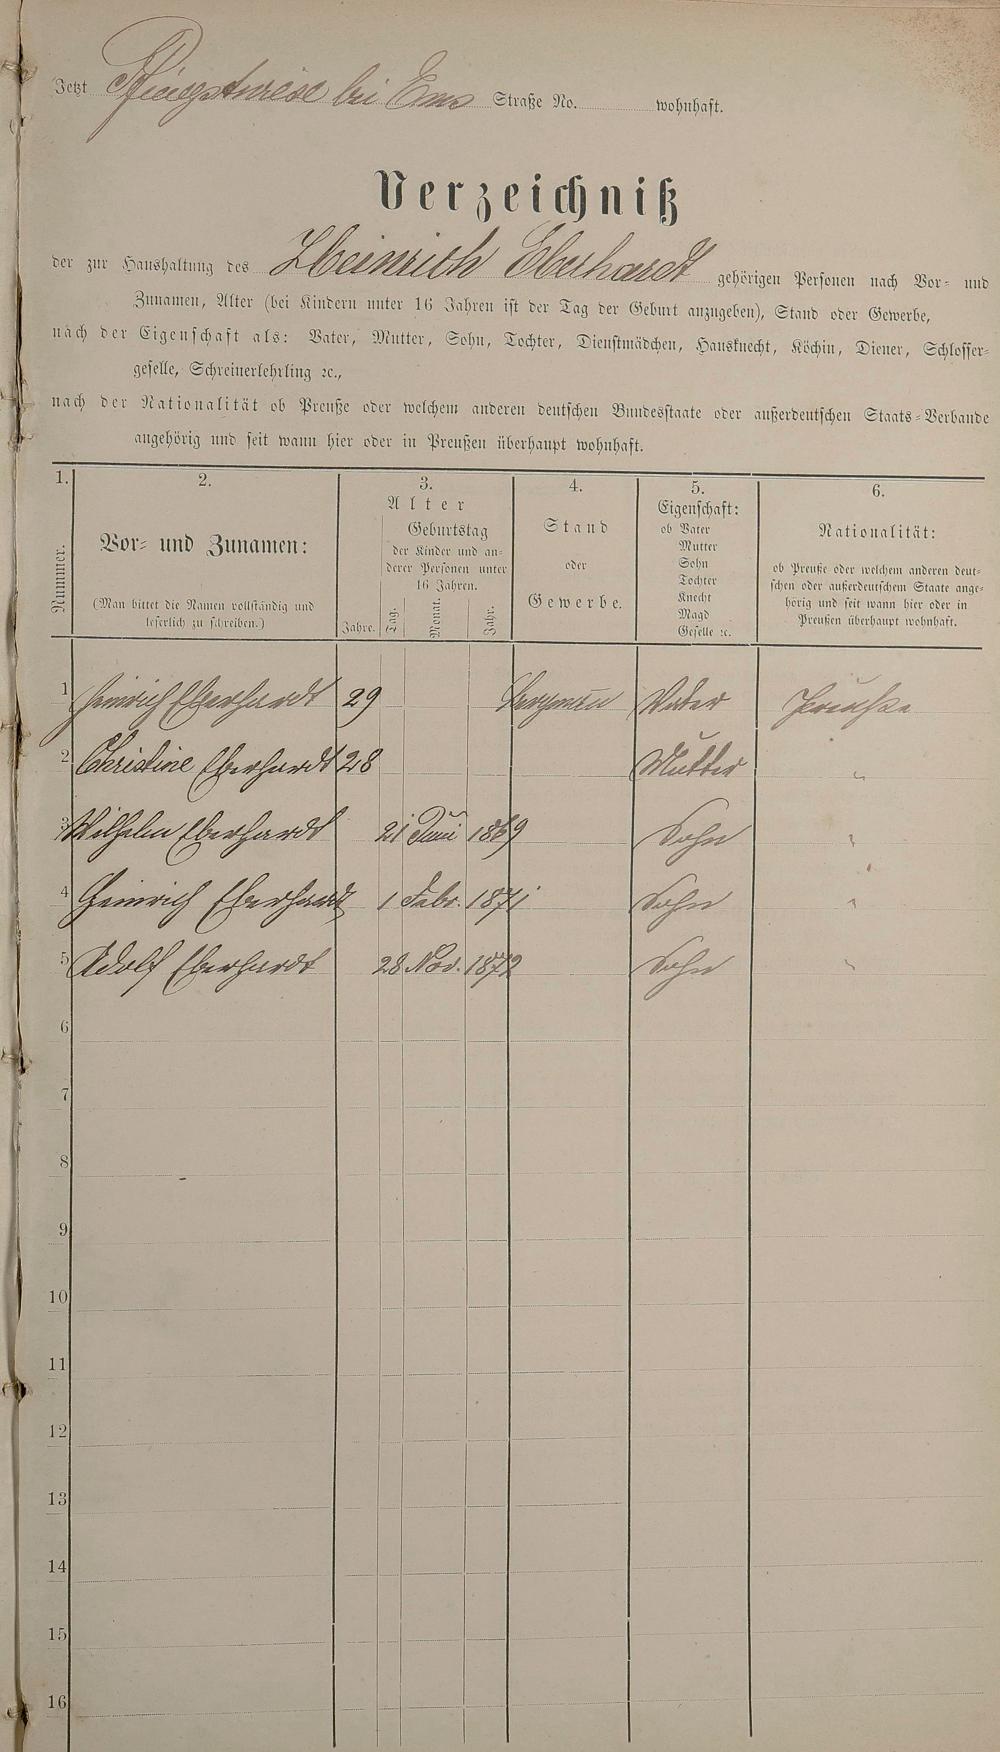 Jetzt Pfingstwiese bei Ems Straße No. wohnhaft.
Verzeichniß
der zur Haushaltung des Heinrich Eberhardt gehörigen Personen nach Vor- und
Zunamen, Alter (bei Kindern unter 16 Jahren ist der Tag der Geburt anzugeben), Stand oder Gewerbe,
nach der Eigenschaft als: Vater, Mutter, Sohn, Tochter, Dienstmädchen, Hausknecht, Köchin, Diener, Schlosser-
geselle, Schreinerlehrling ꝛc.,
nach der Nationalität ob Preuße oder welchem anderen deutschen Bundesstaate oder außerdeutschen Staats-Verbande
angehörig und seit wann hier oder in Preußen überhaupt wohnhaft.
1.
Nummer.
2.
Vor- und Zunamen:
(Man bittet die Namen vollständig und
leserlich zu schreiben.)
3.
Alter
Geburtstag
der Kinder und an-
derer Personen unter
16 Jahren.
Jahre.
Tag.
Monat.
Jahr.
4.
Stand
oder
Gewerbe.
5.
Eigenschaft:
ob Vater
Mutter
Sohn
Tochter
Knecht
Magd
Geselle ꝛc.
6.
Nationalität:
ob Preuße oder welchem anderen deut-
schen oder außerdeutschem Staate ange-
hörig und seit wann hier oder in
Preußen überhaupt wohnhaft.
1 Heinrich Eberhardt 29 Bergmann Vater Preuße
2 Christine Eberhardt 28 Mutter "
3 Wilhelm Eberhardt 21 Juni 1869 Sohn "
4 Heinrich Eberhardt 1 Febr. 1871 Sohn "
5 Adolf Eberhardt 28 Nov. 1872 Sohn "
6
7
8
9
10
11
12
13
14
15
16